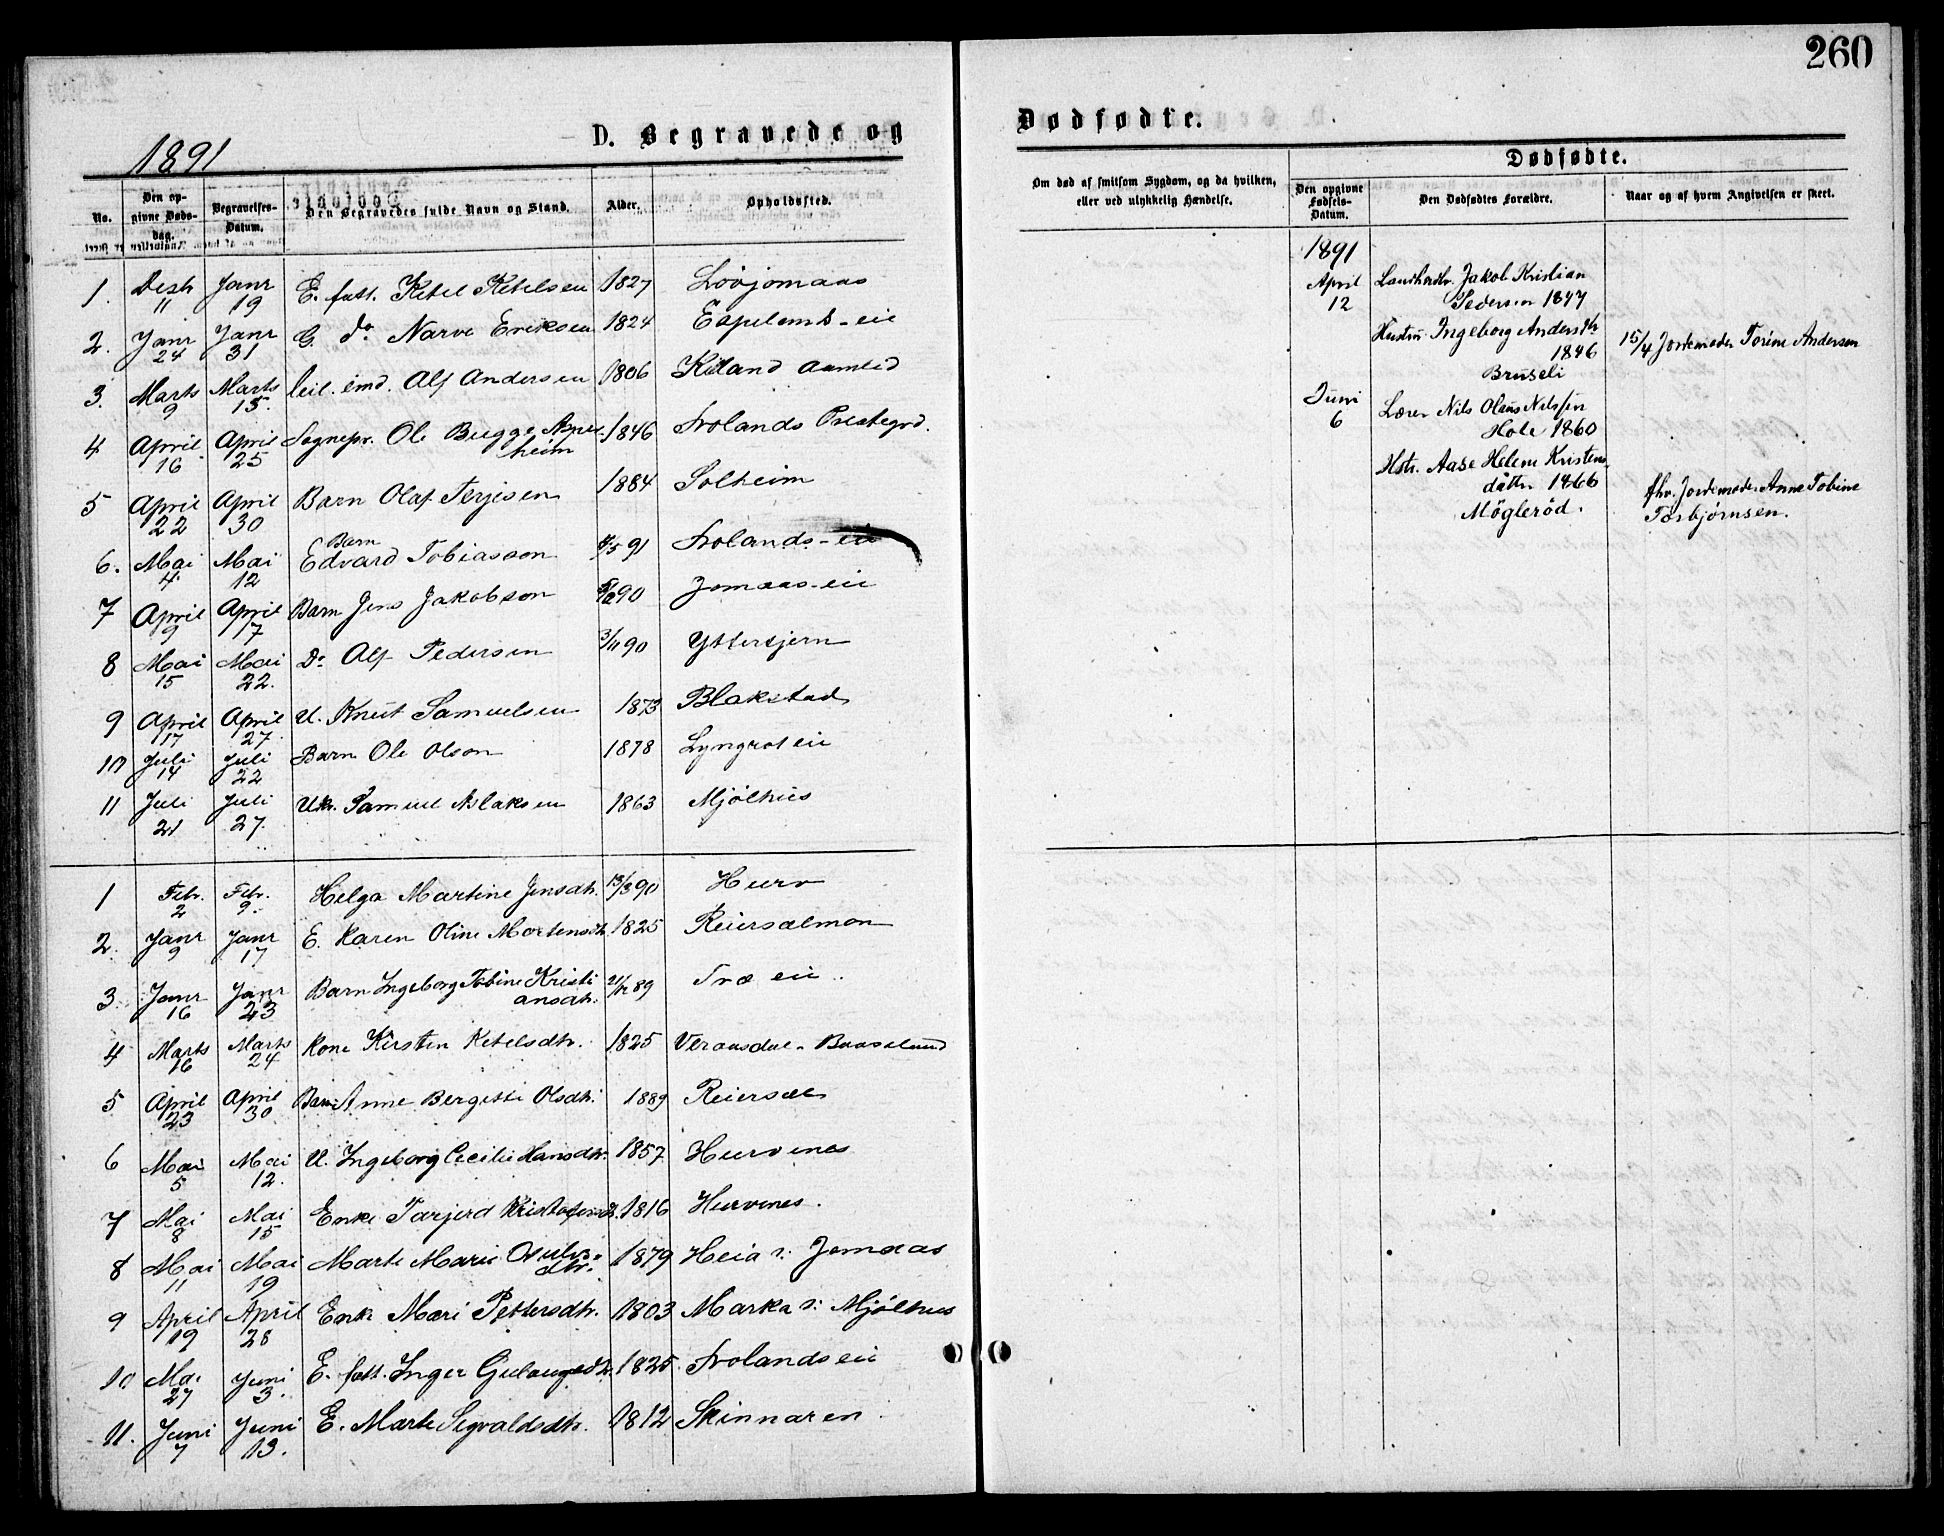 260
1891
D. Begravede og
Dødfødte.
No.
Den opgivne Dødsdag.
Begravelses-Datum.
Den Begravedes fulde Navn og Stand.
Alder.
Opholdssted.
1. Desb 11 Janr 19 E. fatt. Ketel Ketelsen 1827 Lövjomaas
2. Janr 24 Janr 31 G. do Narve Eriksen 1824 Espelands-eie
3. Marts 9 Marts 15. leil. emd. Alf Andersen 1806 Kiland Aamlid
4 April 16 April 25 Sognepr. Ole Bugge Asperheim 1846 Frolands Prestegrd.
5 April 22 April 30 Barn Olaf Terjesen 1884 Solheim
6. Mai 4 Mai 12 Barn Edvard Tobiasson 4/5 91 Frolands-eie
7 April 9 April 17 Barn Jens Jakobson 90 Jomaas-eie
8 Mai 15 Mai 22. Do Alf Pedersen 3/11 90 Yttersjern
9 April 17 April 27. U. Knut Samuelsen 1873 Blakstad
10 Juli 14 Juli 22 Barn Ole Olson 1878 Lyngrot eie
11 Juli 21 Juli 27. Uk. Samuel Aslaksen 1863 Mjölhus
1 Febr. 2 Febr. 9. Helga Martine Jensdtr. 13/3 90 Hurv
2. Janr 9 Janr 17 E. Karen Oline Mortensdtr. 1825 Reiersølmon
3. Janr 16 Janr 23 Barn Ingeborg Tobine Kristiansdtr. 89 Træ eie
4 Marts 16 Marts 24 Kone Kirsten Ketelsdtr. 1825 Veraasdal - Baaseland
5 April 23 April 30 Barn Anne Bergitte Olsdtr. 1889 Reiersøl
6 Mai 5 Mai 12. U. Ingeborg Cecilie Hansdtr. 1857 Hurvenes
7 Mai 8 Mai 15 Enke Tarjerd Kristofersdtr. 1816 Hurvenes.
8 Mai 11 Mai 19 Marte Marie Osulvsdtr. 1879 Heia v: Jomaas
9 April 19 April 28 Enke Mari Pettersdtr. 1803 Marka v: Mjölhus
10 Mai 27 Juni 3. E. fatt. Inger Gulaugsdtr. 1825. Frolands eie
11. Juni 7 Juni 13. E. Marte Sigvaldsdtr. 1812 Skinnaren
Om død af smitsom Sygdom, og da hvilken, eller ved ulykkelig Hændelse.
Dødfødte.
Den opgivne Fødsels-Datum.
Den Dødfødtes Forældre.
Naar og af hvem Angivelsen er skeet.
1891
April 12 Landhndlr. Jakob Kristian
Pedersen 1847
Hustru Ingeborg Andersdtr
1846
Bruseli
15/4 Jordemoder Torine Andersen
Juni 6 Lærer Nils Olaus Nilssen
Hole 1860
Hstr. Aase Helene Kristens
datter 1866
Möglerød.
fhv. Jordemoder Anne Tobine
Torbjørnsen.